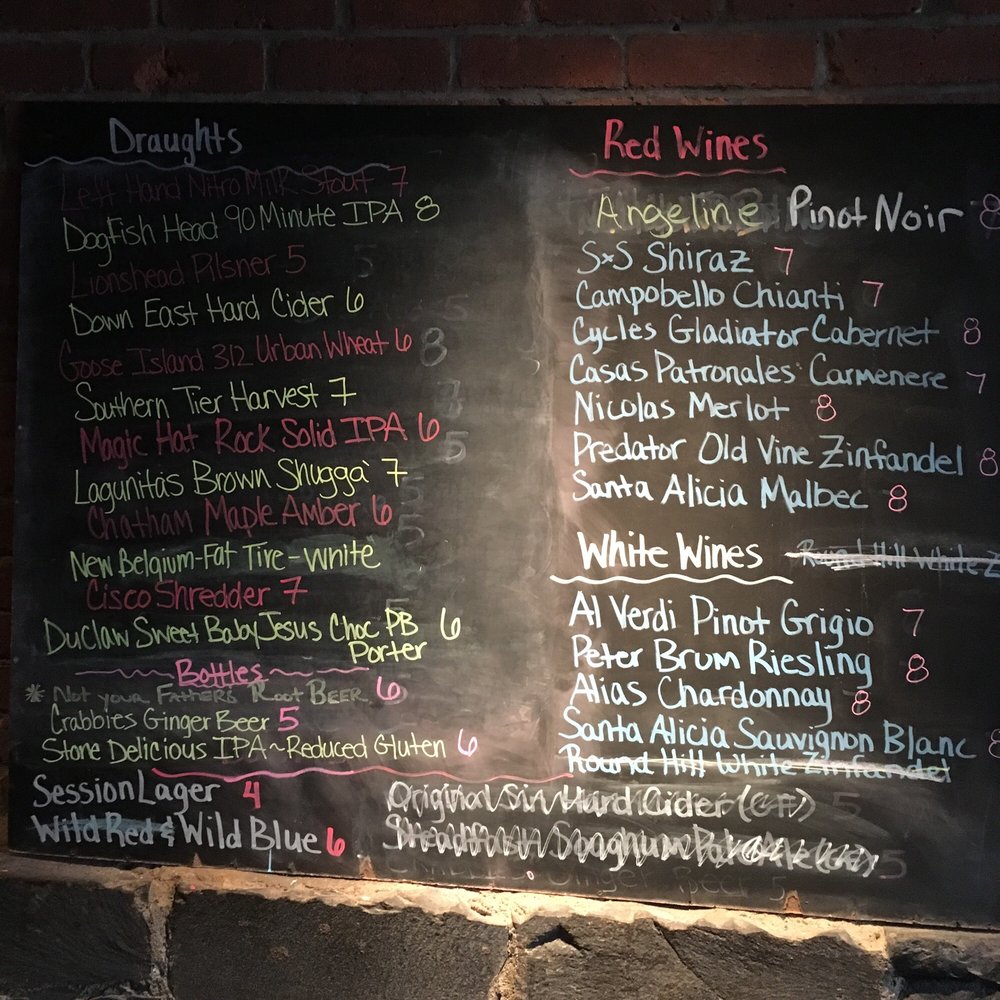 Draughts
Left Hand Nitro Milk Stout 7
Dogfish Head 90 Minute IPA 8
Lionshead Pilsner 5
Down East Hard Cider 6
Goose Island 312 Urban Wheat 6
Southern Tier Harvest 7
Magic Hat Rock Solid IPA 6
Lagunitas Brown Shugga' 7
Chatham Maple Amber 6
New Belgium-Fat Tire-White
Cisco Shredder 7
DuClaw Sweet Baby Jesus Choc PB 6
Porter
Bottles
* Not your Fathers Root Beer 6
Crabbies Ginger Beer 5
Stone Delicious IPA~Reduced Gluten 6
Session Lager 4
Wild Red & Wild Blue 6
Original Sin Hard Cider (GF) 5
Red Wines
Angeline Pinot Noir 8
SxS Shiraz 7
Campobello Chianti 7
Cycles Gladiator Cabernet 8
Casas Patronales Carmenere 7
Nicolas Merlot 8
Predator Old Vine Zinfandel 8
Santa Alicia Malbec 8
White Wines
Round Hill White Z
Al Verdi Pinot Grigio 7
Peter Brum Riesling 8
Alias Chardonnay 8
Santa Alicia Sauvignon Blanc 8
Round Hill White Zinfandel